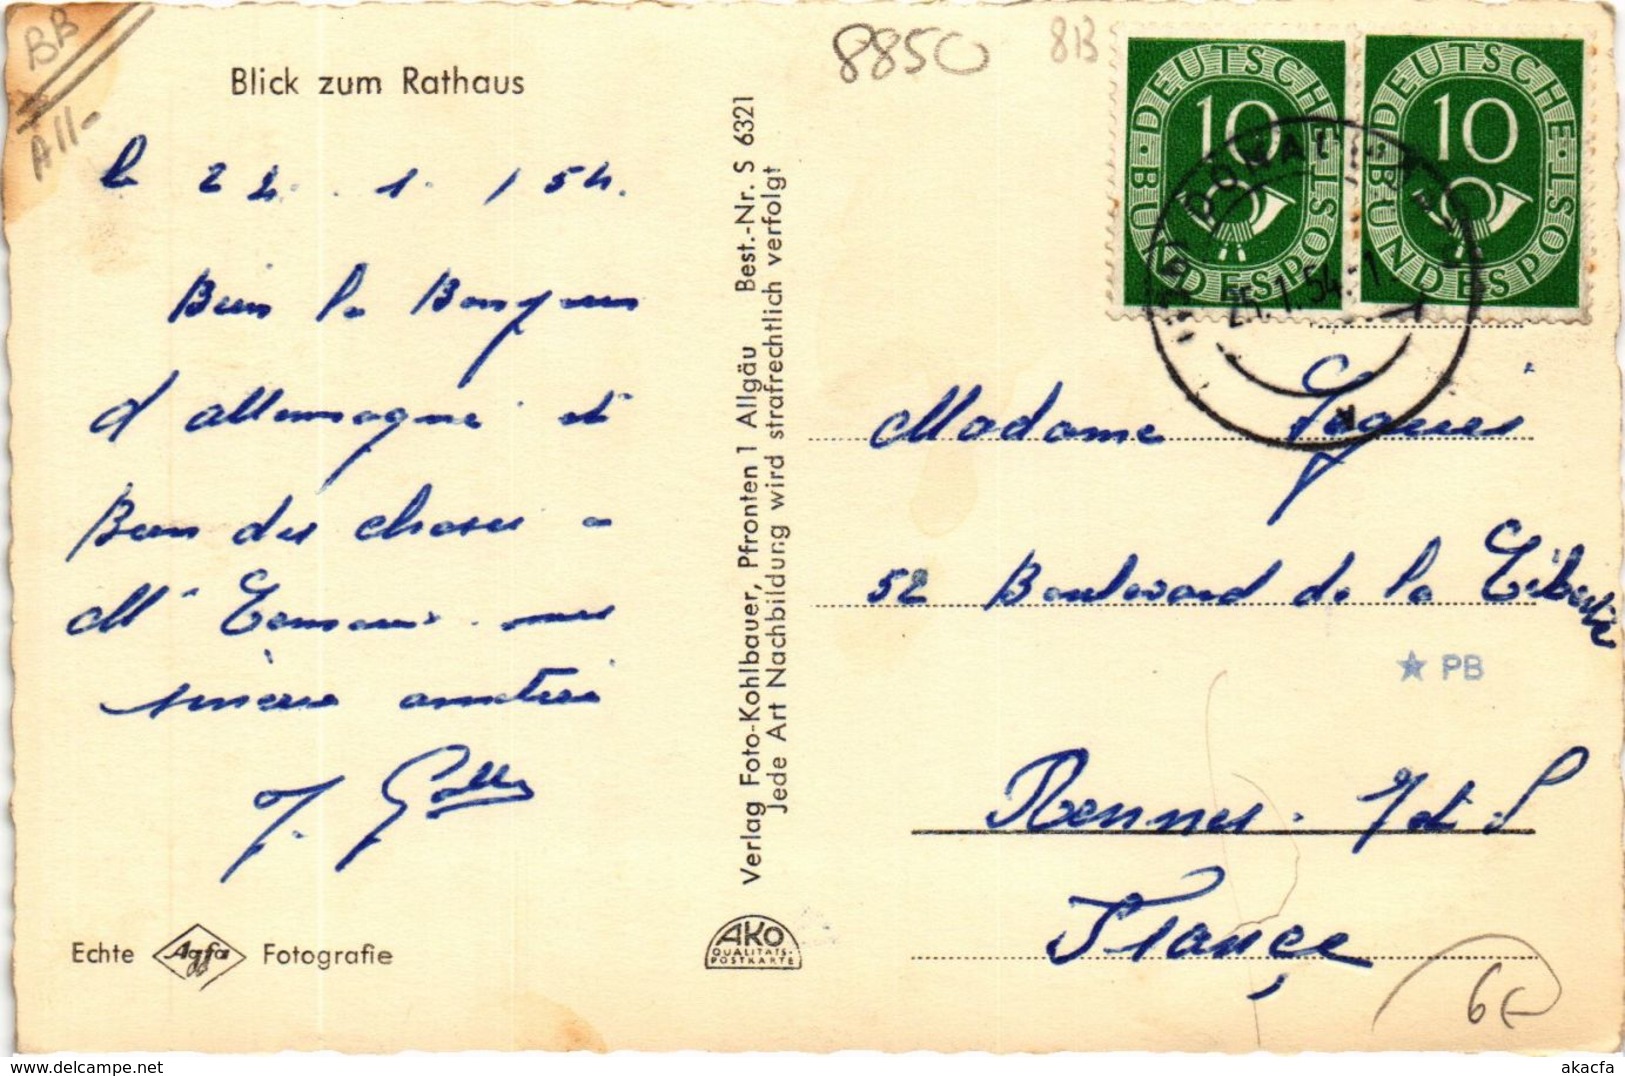 BB
All-
8850
8B
Blick zum Rathaus
le 22. 1. 54.
Bien le Bonjour
d'allemagne et
Bien des choses a
Mr
sincère amitiés
J.
Echte Agfa Fotografie
Verlag Foto-Kohlbauer, Pfronten 1 Allgäu Best.-Nr. S 6321
Jede Art Nachbildung wird strafrechtlich verfolgt
AKO
QUALITÄTS-
POSTKARTE
DEUTSCHE BUNDESPOST 10
DEUTSCHE BUNDESPOST 10
25.1.54
Madame
52 Boulevard de la Liberté
★ PB
Rennes. I et V
France
6€
akpool.co.uk
akacfa